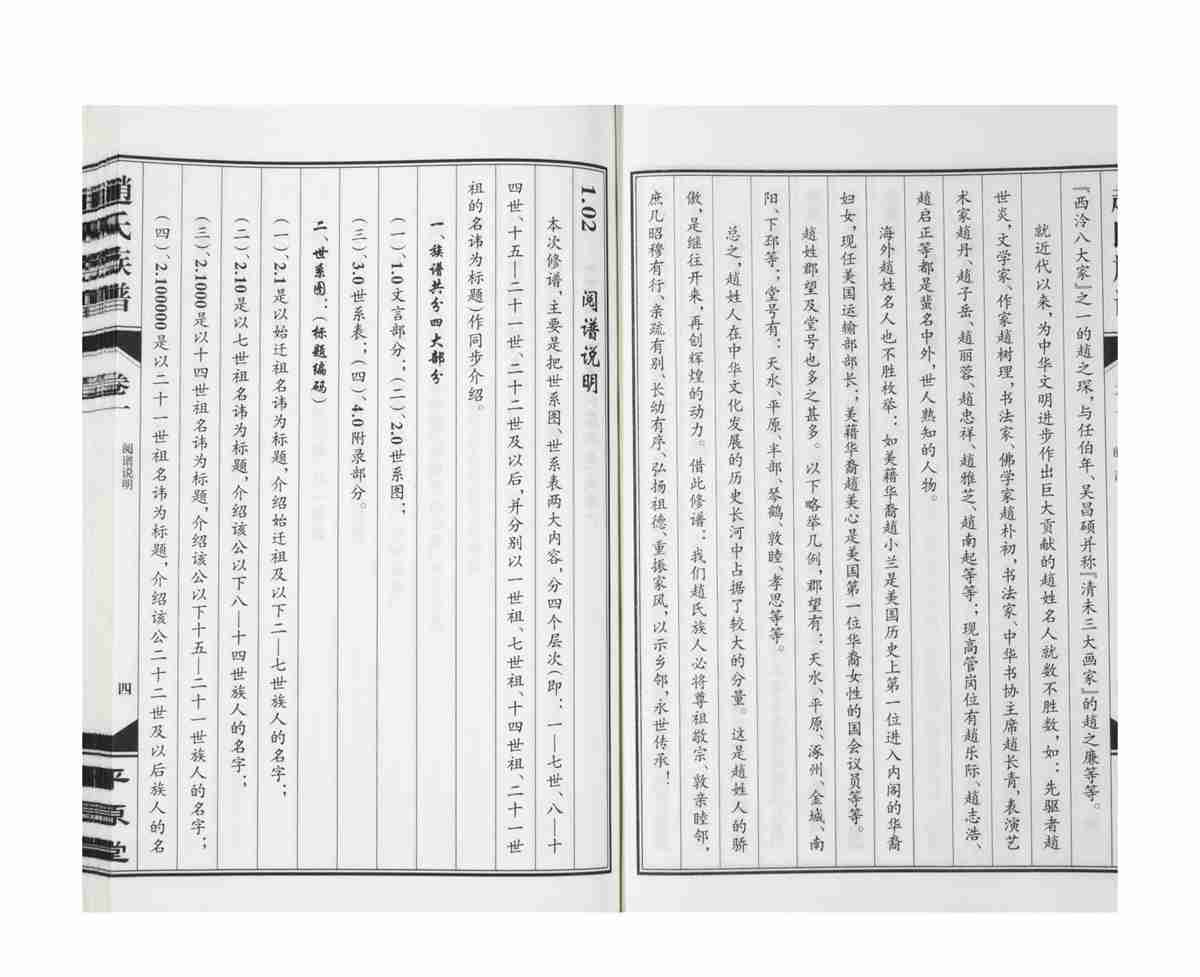 『西泠八大家』之一的趙之琛，与任伯年、吴昌硕并称『清末三大画家』的趙之廉等等。
就近代以来，为中华文明进步作出巨大贡献的趙姓名人就数不胜数，如：先驱者趙
世炎，文学家、作家趙树理，书法家、佛学家趙朴初，书法家、中华书协主席趙长青，表演艺
术家趙丹、趙子岳、趙丽蓉、趙忠祥、趙雅芝、趙南起等等；现高管岗位有趙乐际、趙志浩、
趙启正等都是蜚名中外，世人熟知的人物。
海外趙姓名人也不胜枚举：如美藉华裔趙小兰是美国历史上第一位进入内阁的华裔
妇女，现任美国运输部部长；美藉华裔趙美心是美国第一位华裔女性的国会议员等等。
趙姓郡望及堂号也多之甚多。以下略举几例，郡望有：天水、平原、涿州、金城、南
阳、下邳等；堂号有：天水、平原、半部、琴鹤、敦睦、孝思等等。
总之，趙姓人在中华文化发展的历史长河中占据了较大的分量。这是趙姓人的骄
傲，是继往开来，再创辉煌的动力。借此修谱：我们趙氏族人必将尊祖敬宗、敦亲睦邻，
庶几昭穆有行、亲疏有别、长幼有序、弘扬祖德、重振家风，以示乡邻，永世传承！
1.02 阅谱说明
本次修谱，主要是把世系图、世系表两大内容，分四个层次（即：一—七世、八—十
四世、十五—二十一世、二十二世及以后，并分别以一世祖、七世祖、十四世祖、二十一世
祖的名讳为标题）作同步介绍。
一、族谱共分四大部分
（一）、1.0文言部分；（二）、2.0世系图；
（三）、3.0世系表；（四）、4.0附录部分。
二、世系图：（标题编码）
（一）、2.1是以始迁祖名讳为标题，介绍始迁祖及以下二—七世族人的名字；
（二）、2.10是以七世祖名讳为标题，介绍该公以下八—十四世族人的名字；
（三）、2.1000是以十四世祖名讳为标题，介绍该公以下十五—二十一世族人的名字；
（四）、2.100000是以二十一世祖名讳为标题，介绍该公二十二世及以后族人的名
趙氏族谱
卷一
阅谱说明
四
平原堂